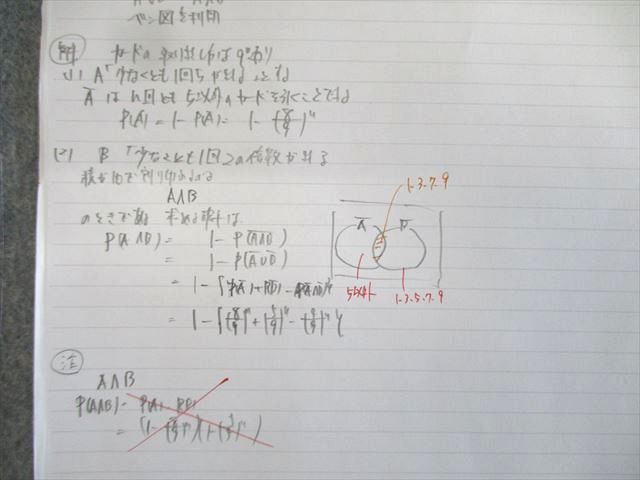 ベン図を利用
解 カードの取り出し方は9ⁿ通り
(1) A「少なくとも1回5が出る」とする
Ā はn回とも5以外のカードを引くことである
P(A) = 1 - P(Ā) = 1 - (8/9)ⁿ
(2) B「少なくとも1回2の倍数が出る
積が10で割り切れる
A∩B
のときである 求める確率は
P(A∩B) = 1 - P(\overline{A∩B})
= 1 - P(Ā∪B̄)
= 1 - {P(Ā) + P(B̄) - P(Ā∩B̄)}
= 1 - {(8/9)ⁿ + (5/9)ⁿ - (4/9)ⁿ}
1.3.7.9
Ā B̄
5以外 1.3.5.7.9
注
A∩B
P(A∩B) = P(A) P(B)